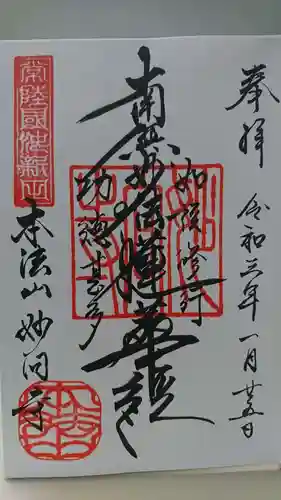 奉拝
令和三年一月廿五日
如説修行
南無妙法蓮華経
功徳甚多
常陸國
本法山妙
寺